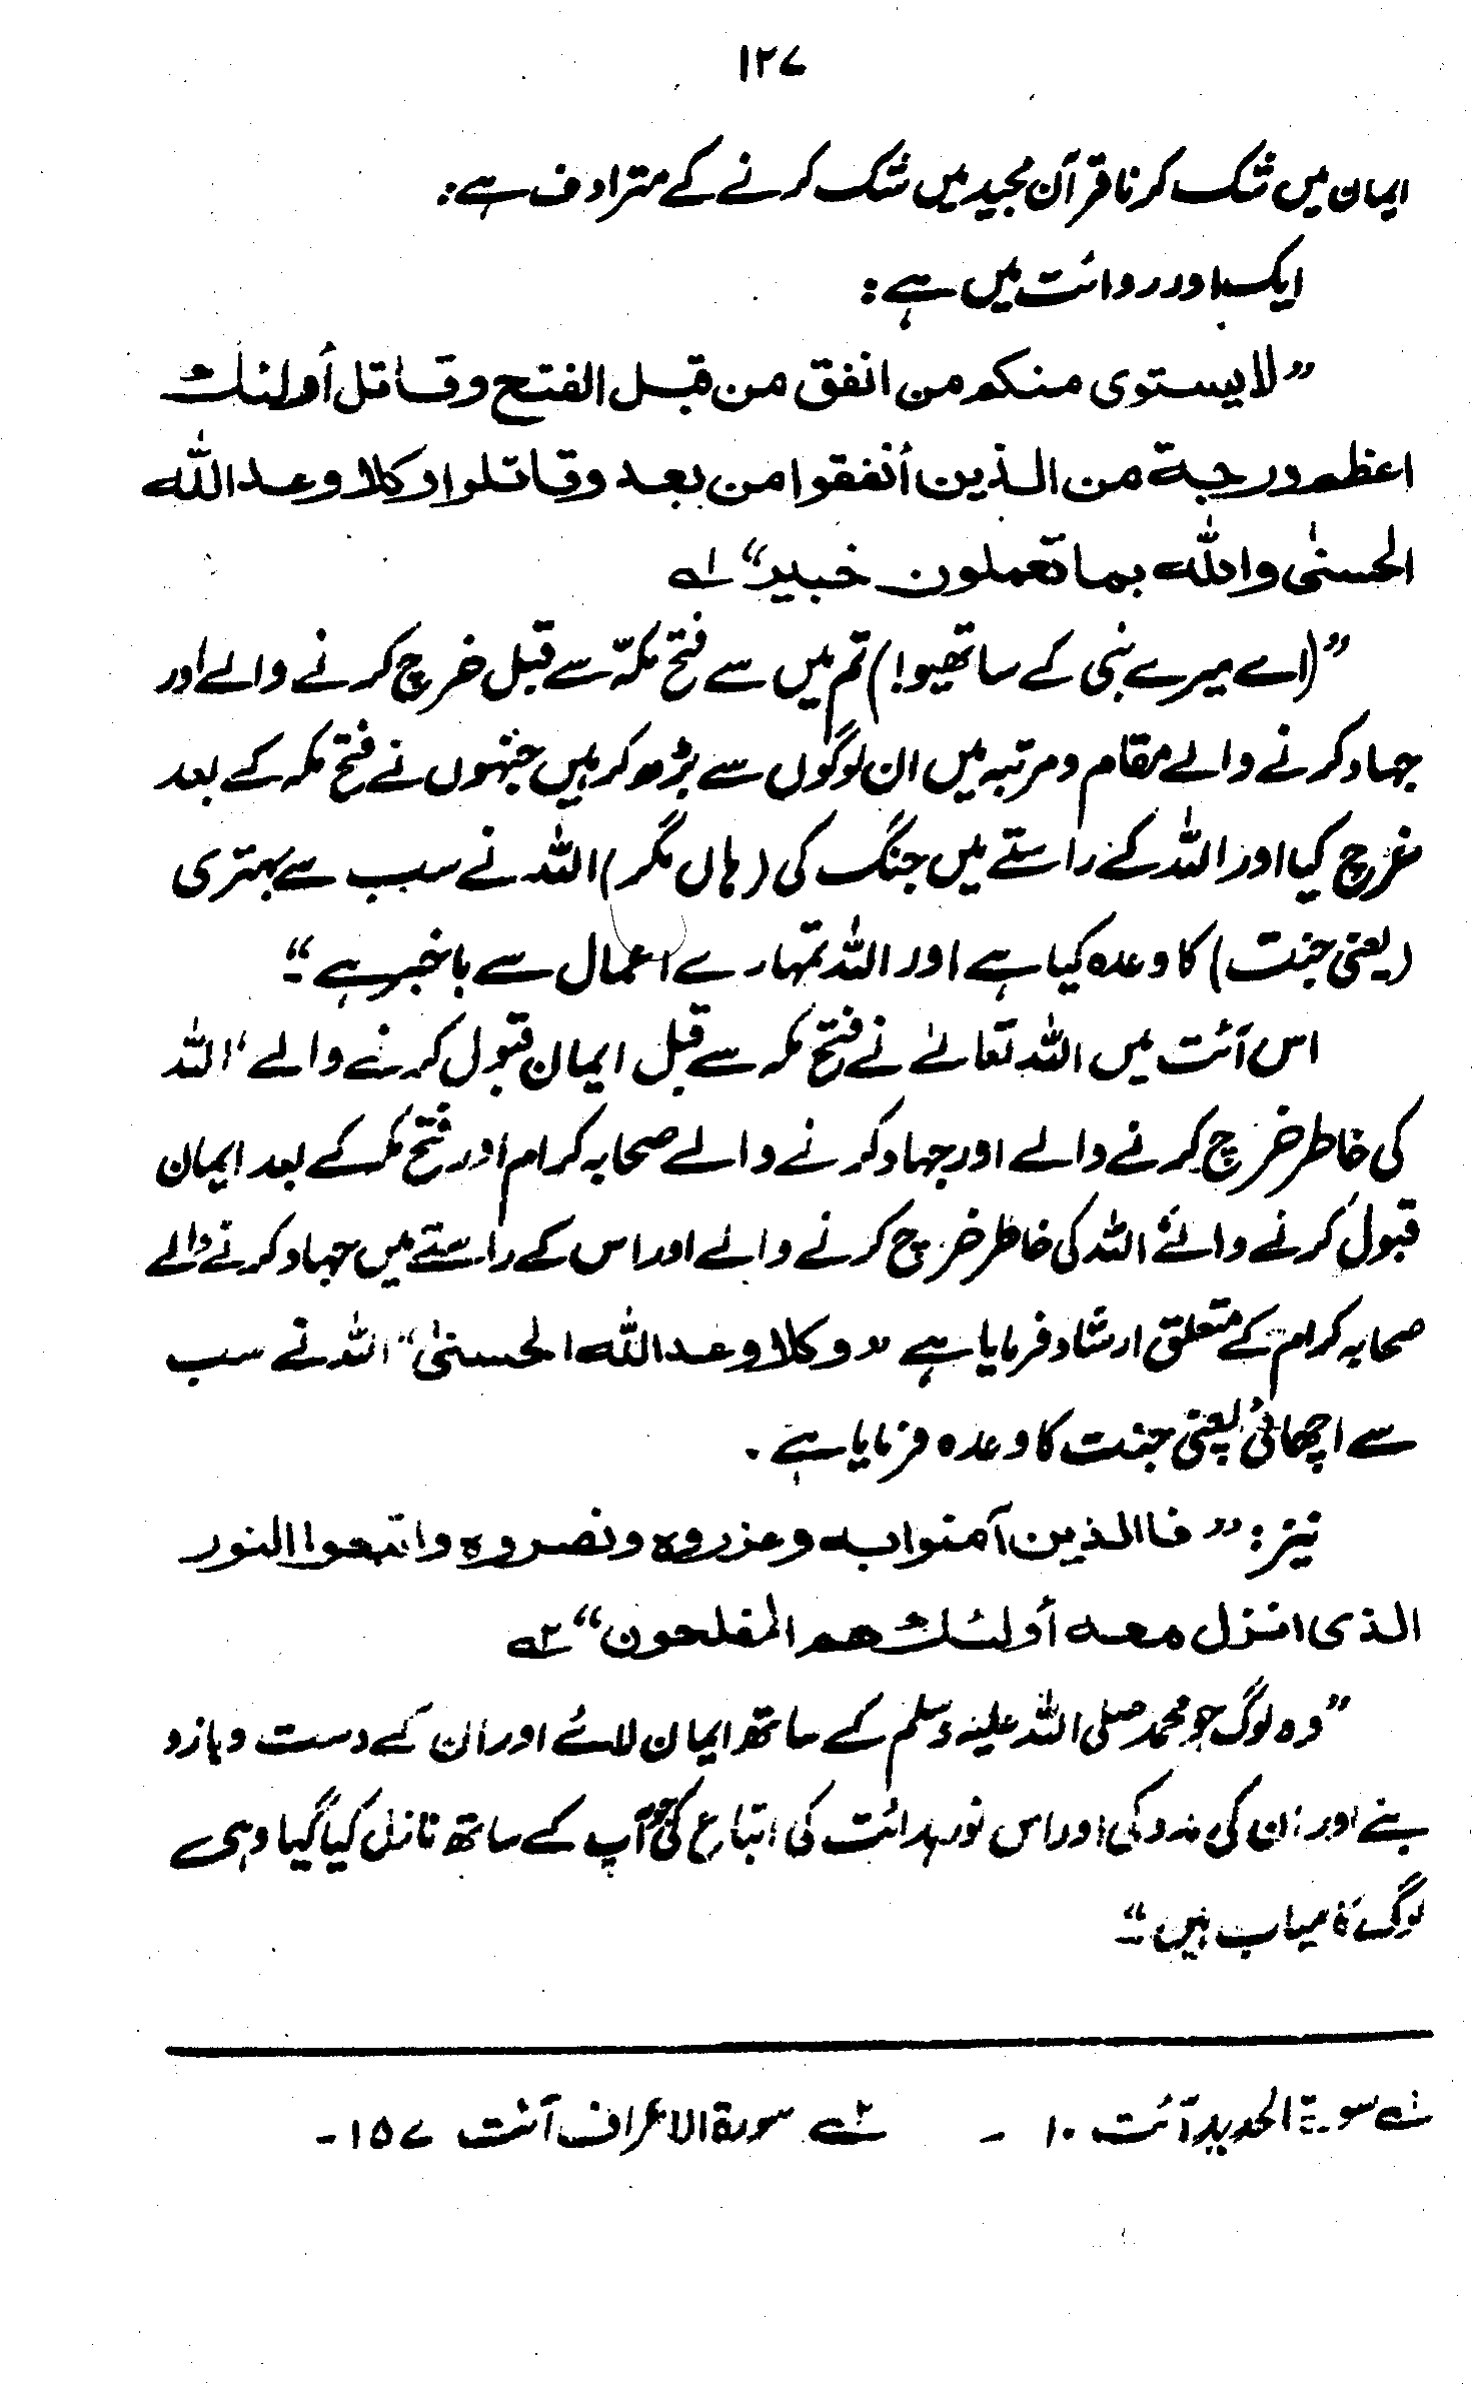 ۱۲۷
ایمان میں شک کرنا قرآن مجید میں شک کرنے کے مترادف ہے:
ایک اور روائت میں ہے:
”لا یستوی منکم من انفق من قبل الفتح وقاتل أولئك
اعظم درجة من الذین أنفقوا من بعد وقاتلوا وکلا وعد اللّٰه
الحسنیٰ واللّٰه بما تعملون خبیر“ ۱ے
”(اے میرے نبی کے ساتھیو!) تم میں سے فتح مکّہ سے قبل خرچ کرنے والے اور
جہاد کرنے والے مقام و مرتبہ میں ان لوگوں سے بڑھ کر ہیں جنھوں نے فتح مکہ کے بعد
خرچ کیا اور اللّٰہ کے راستے میں جنگ کی (ہاں مگر) اللّٰہ نے سب سے بہتری
(یعنی جنت) کا وعدہ کیا ہے اور اللّٰہ تمہارے اعمال سے باخبر ہے“۔
اس آئت میں اللّٰہ تعالےٰ نے فتح مکہ سے قبل ایمان قبول کرنے والے، اللّٰہ
کی خاطر خرچ کرنے والے اور جہاد کرنے والے صحابہ کرام اور فتح مکہ کے بعد ایمان
قبول کرنے والے، اللّٰہ کی خاطر خرچ کرنے والے اور اس کے راستے میں جہاد کرنے والے
صحابہ کرام کے متعلق ارشاد فرمایا ہے ”وکلا وعد اللّٰه الحسنیٰ“ اللّٰہ نے سب
سے اچھائی یعنی جنت کا وعدہ فرمایا ہے۔
نیز: ”فاالذین آمنوا بہ وعزروہ ونصروہ واتبعوا النور
الذی انزل معہ أولئك ھم المفلحون“ ۲ے
”وہ لوگ جو محمد صلی اللّٰہ علیہ وسلم کے ساتھ ایمان لائے اور ان کے دست و بازو
بنے اور ان کی مدد کی اور اس نور ہدائت کی اتباع کی جو آپ کے ساتھ نازل کیا گیا وہی
لوگ کامیاب ہیں“۔
۱ے سورة الحدید آئت ۱۰ ۔ ۲ے سورة الاعراف آئت ۱۵۷ ۔